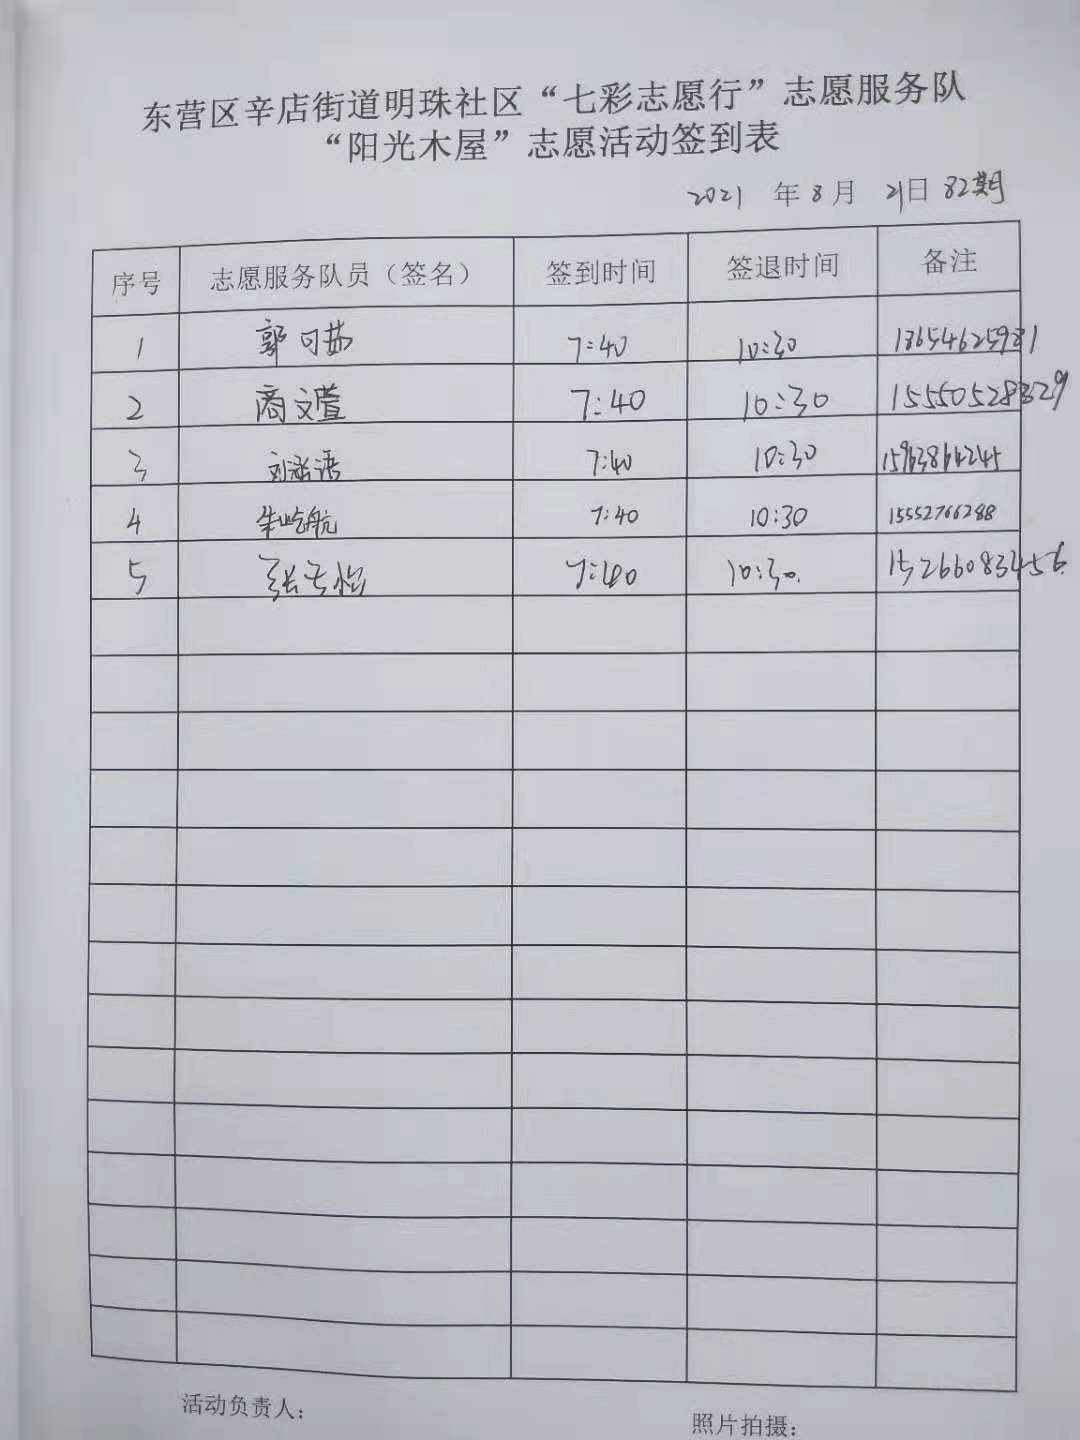 东营区辛店街道明珠社区“七彩志愿行”志愿服务队
“阳光木屋”志愿活动签到表
2021 年 8 月 21 日 82期
序号 志愿服务队员（签名） 签到时间 签退时间 备注
1 郭可茹 7:40 10:30 18654625981
2 商文萱 7:40 10:30 15550528329
3 刘涵语 7:40 10:30 15963864245
4 朱屹航 7:40 10:30 15552766288
5 张天怡 7:40 10:30. 15266083456
活动负责人： 照片拍摄：